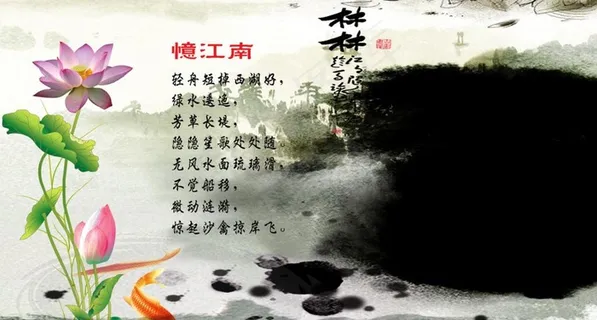 憶江南
轻舟短掉西湖好，
绿水逶迤，
芳草长堤，
隐隐笙歌处处随。
无风水面琉璃滑，
不觉船移，
微动涟漪，
惊起沙禽掠岸飞。